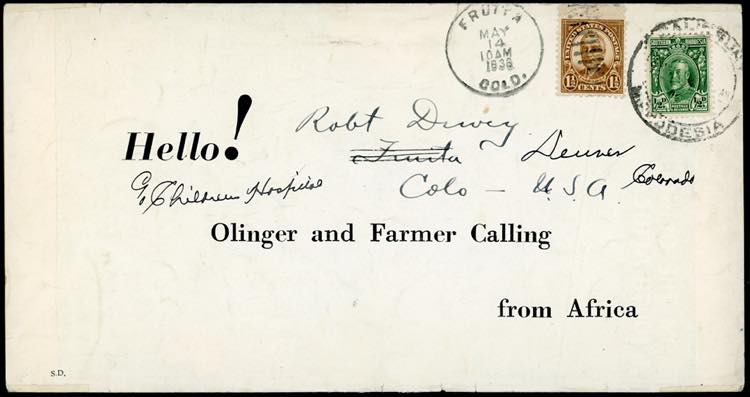 FRUITA
MAY
14
10AM
1936
COLO.
UNITED STATES POSTAGE
1½ CENTS 1½
SOUTHERN RHODESIA
½D. ½D.
Hello!
Robt Dewey
Fruita Denver
Colo - U.S.A. Colorado
℅ Childrens Hospital
Olinger and Farmer Calling
from Africa
S.D.